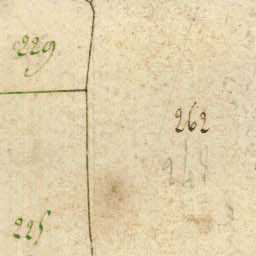 229
262
225